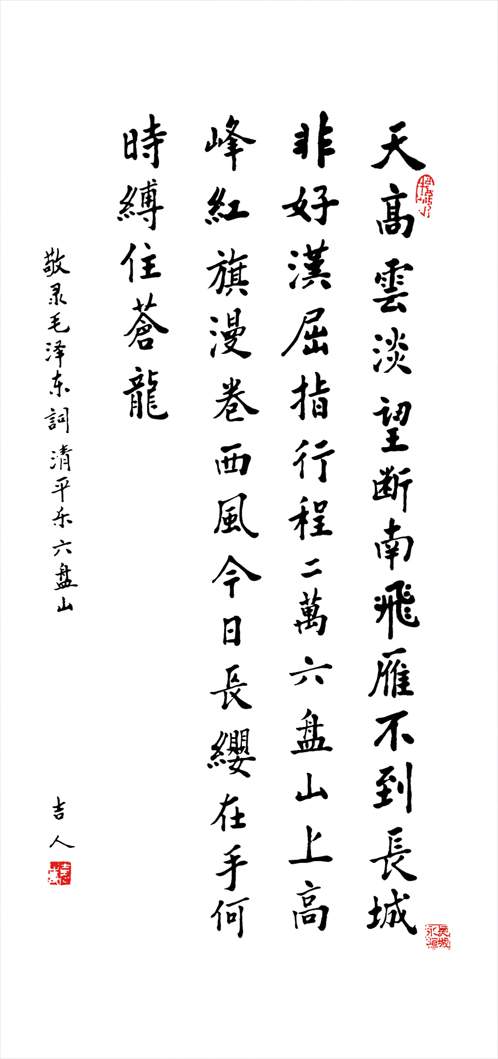 天高雲淡望断南飛雁不到長城
非好漢屈指行程二萬六盘山上高
峰紅旗漫卷西風今日長纓在手何
時縛住蒼龍
敬录毛泽东詞清平乐六盘山
吉人